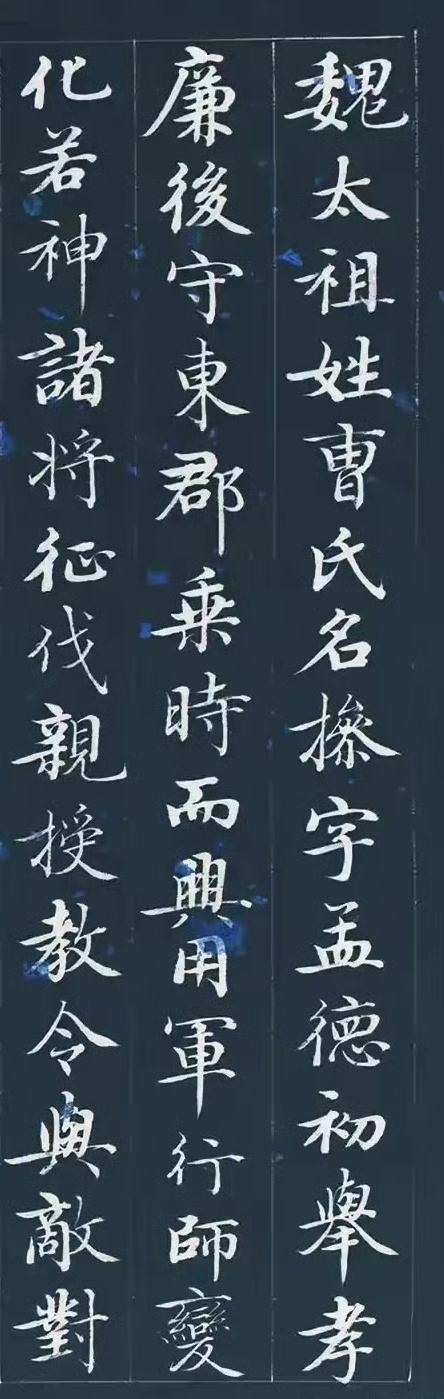 魏太祖姓曺氏名操字孟德初舉孝
廉後守東郡乗時而興用軍行師變
化若神諸将征伐親授教令與敵對